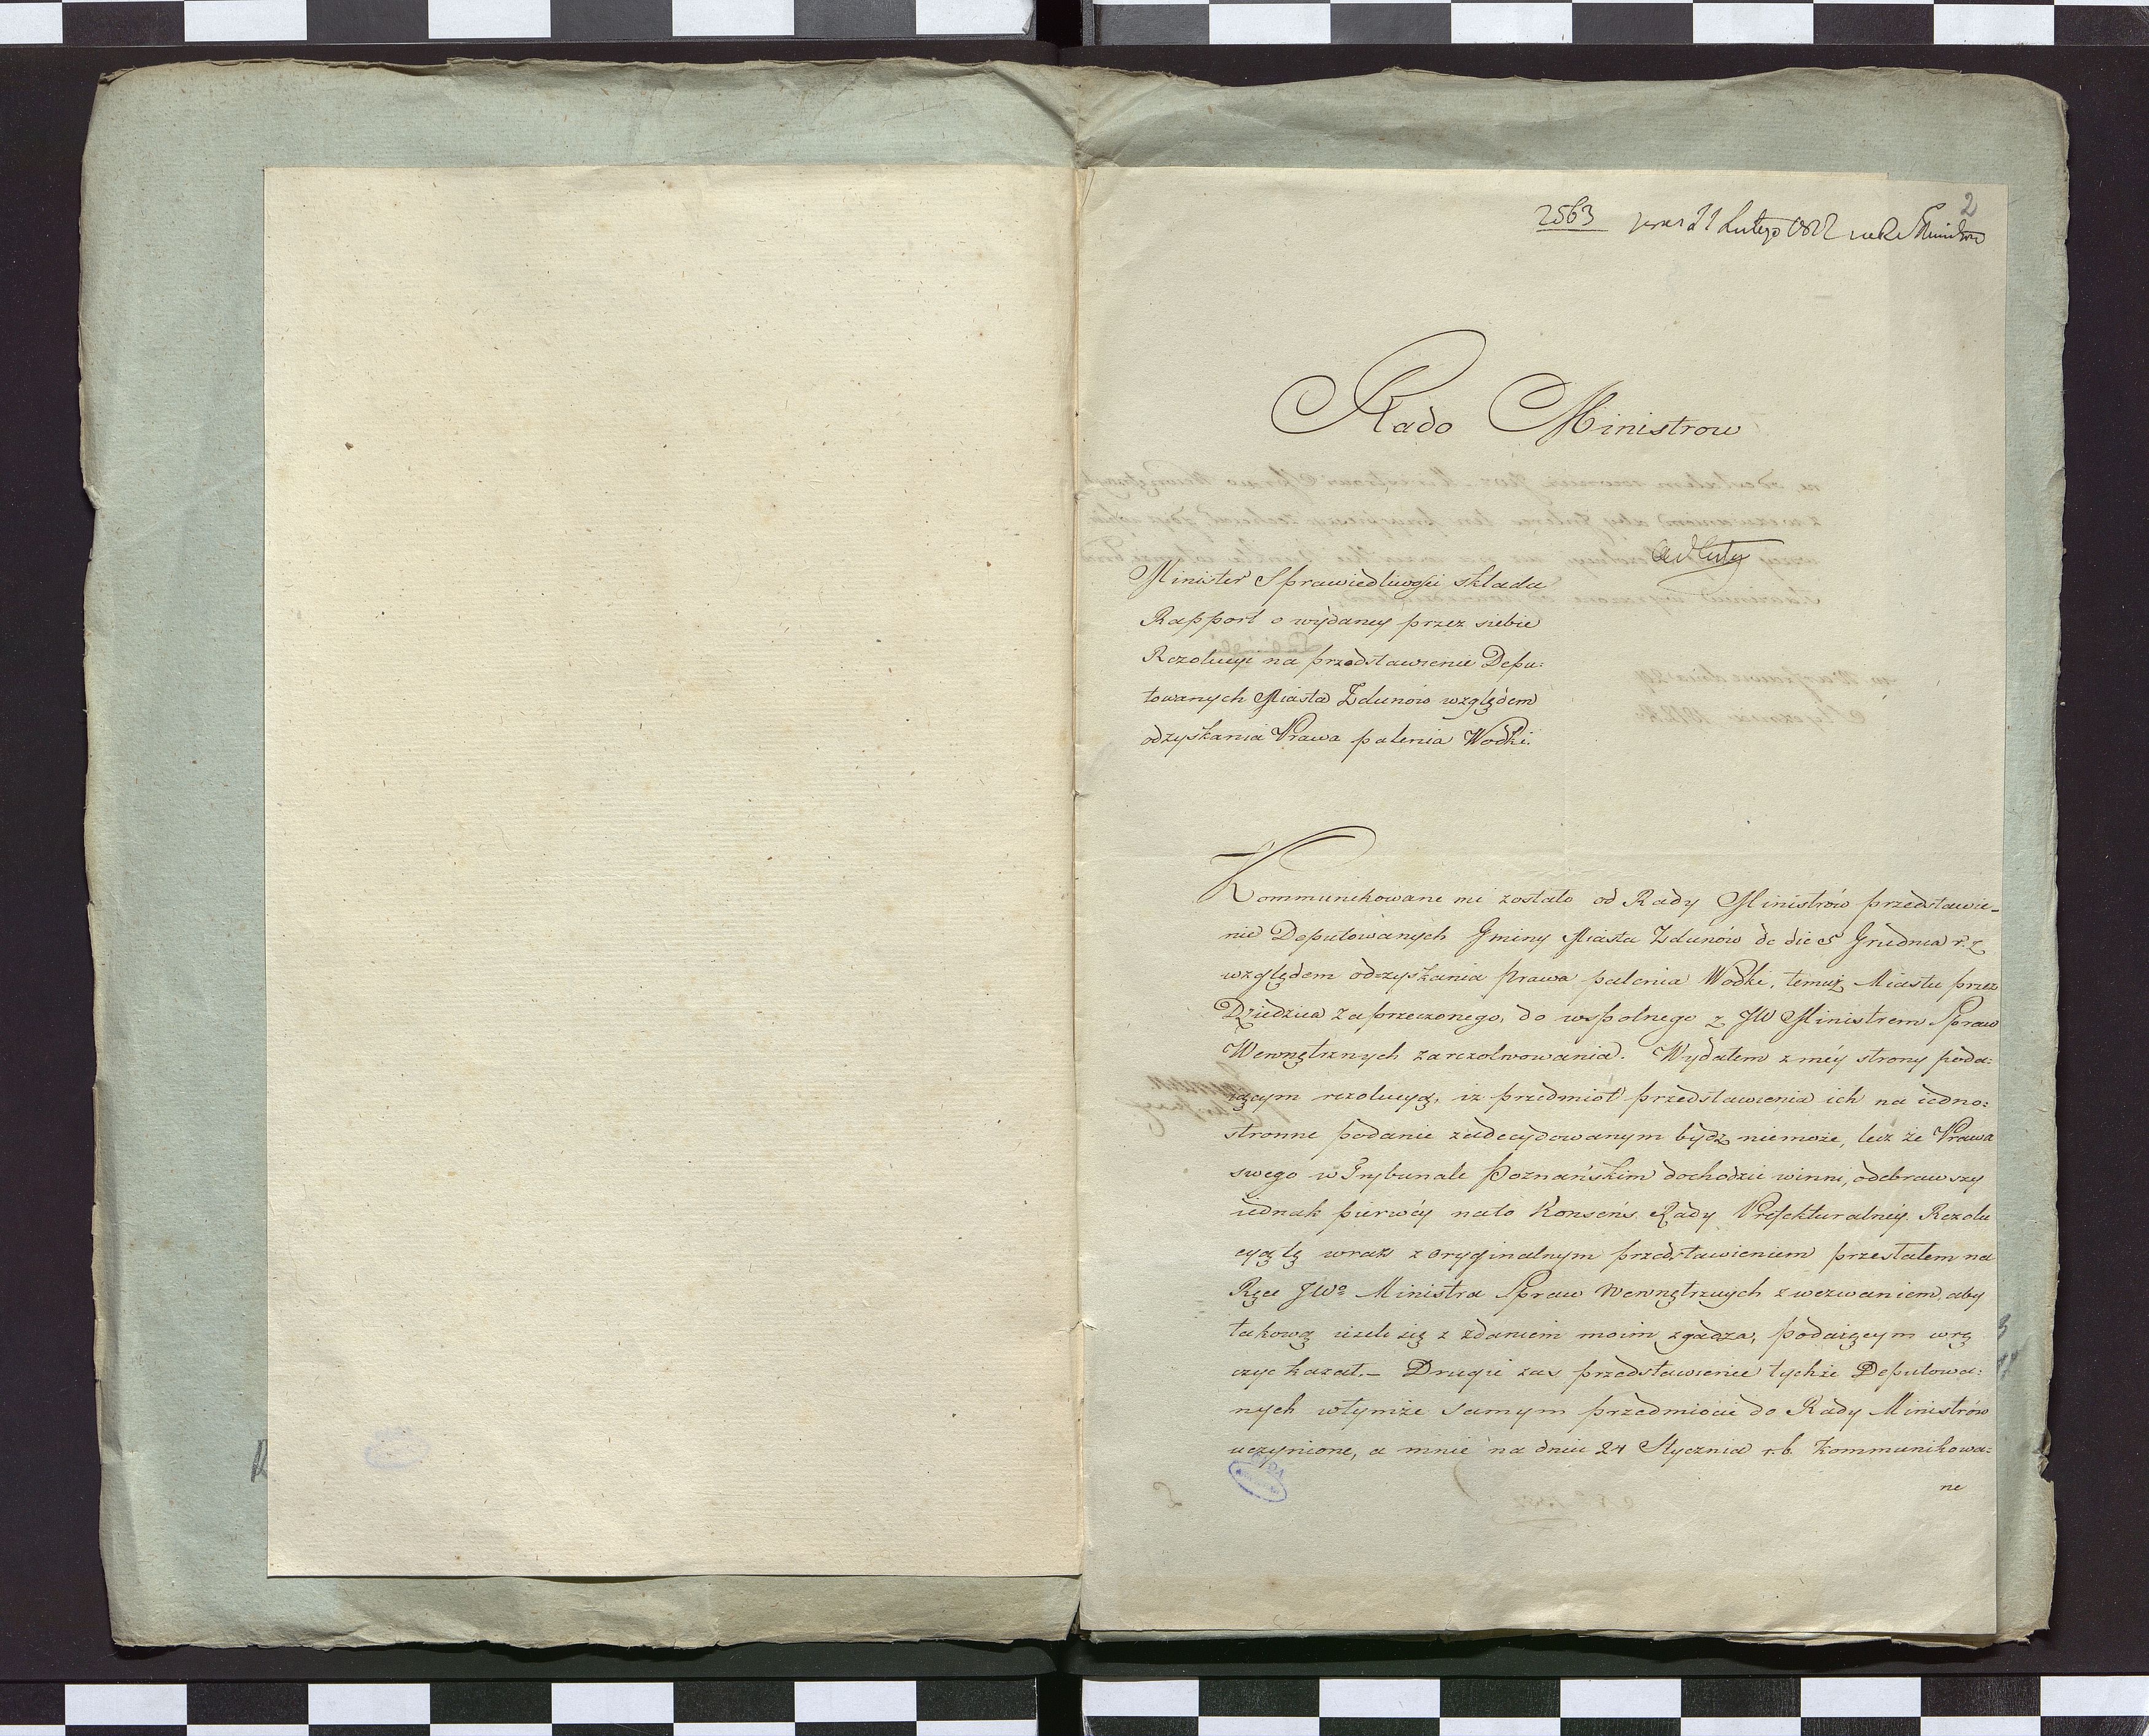 2
2563 21 Lutego 1812
Rado Ministrow
ad acta
Minister Sprawiedliwości składa
Rapport o wydaney przez siebie
Rezolucyi na przedstawienie Depu:
towanych Miasta Zdunów względem
odzyskania Prawa palenia Wodki.
Kommunikowane mi zostało od Rady Ministrów przedstawie-
nie Deputowanych Gminy Miasta Zdunów de die 5 Grudnia r. z
względem odzyskania prawa palenia Wodki, temuż Miastu przez
Dziedzica zaprzeczonego, do wspolnego z JW Ministrem Spraw
Wewnętrznych zarezolwowania. Wydałem z méy strony poda:
iącym rezolucyą, iz przedmiot przedstawienia ich na iedno:
stronne podanie zadecydowanym bydz niemoże, lecz że Prawa
swego w Trybunale Poznańskim dochodzić winni, odebrawszy
iednak pierwéy nato Konsens Rady Prefekturalnéy. Rezolu
cyą tę wraz z oryginalnym przedstawieniem przesłałem na
Ręce JWo Ministra Spraw Wewnętrznych z wezwaniem, aby
takową ieżeli się z zdaniem moim zgadza, podaiącym wrę
czyc kazał. – Drugie zas przedstawienie tychże Deputowa:
nych wtymże samym przedmiocie do Rady Ministrów
uczynione, a mnie na dniu 24 Stycznia r. b. kommunikowa:
ne